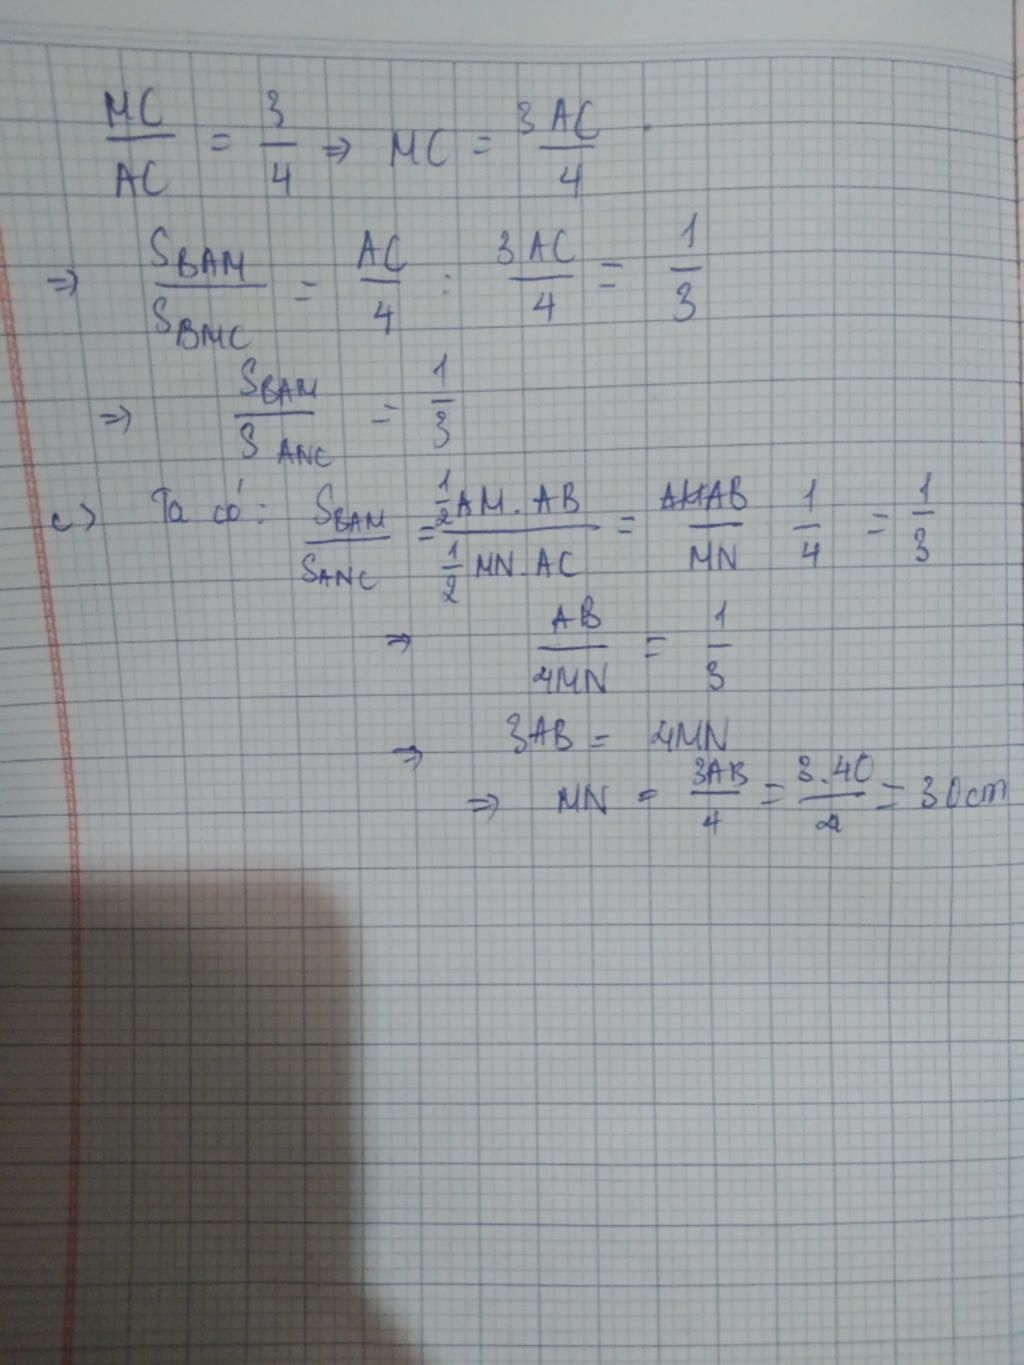 MC/AC = 3/4 => MC = 3AC/4
=> S_BAM/S_BMC = AC/4 : 3AC/4 = 1/3
=> S_BAM/S_ANC = 1/3
c) Ta có: S_BAM/S_ANC = 1/2 AM . AB / 1/2 MN . AC = AB/MN 1/4 = 1/3
=> AB/4MN = 1/3
=> 3AB = 4MN
=> MN = 3AB/4 = 3.40/4 = 30cm